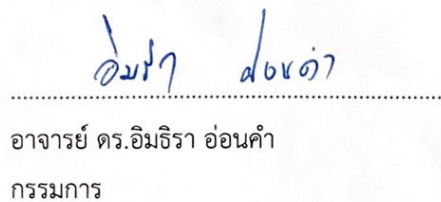 อิมธิรา อ่อนคำ
อาจารย์ ดร.อิมธิรา อ่อนคำ
กรรมการ